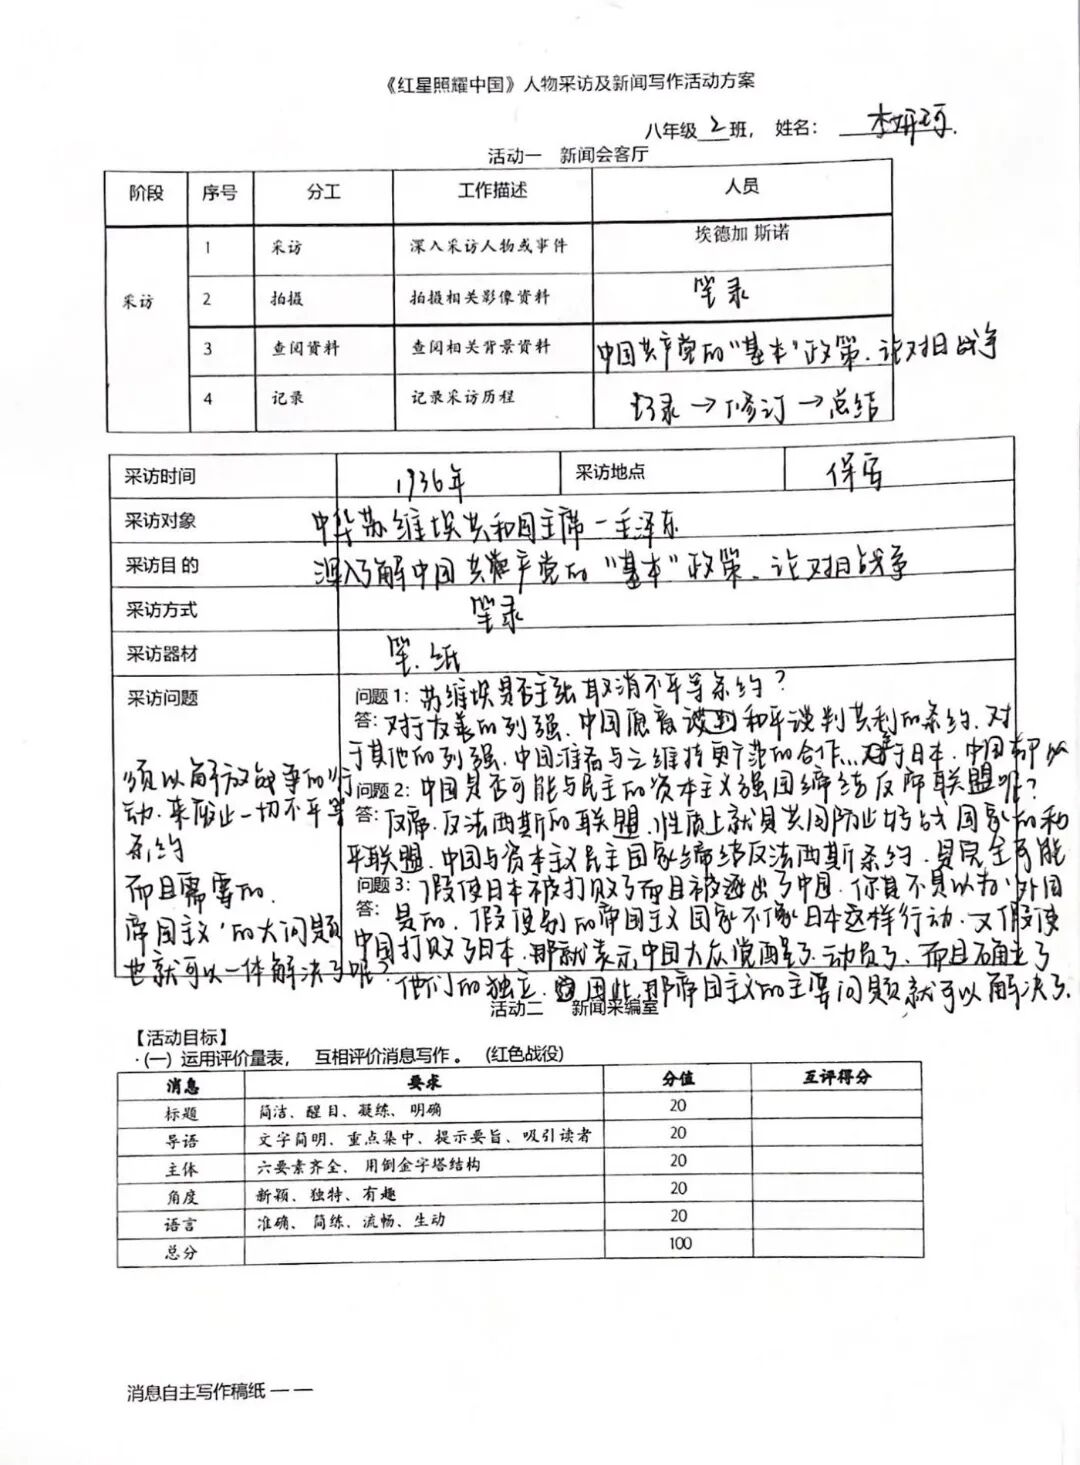 《红星照耀中国》人物采访及新闻写作活动方案
八年级2班， 姓名： 李妍珂.
活动一 新闻会客厅
阶段 序号 分工 工作描述 人员
采访 1 采访 深入采访人物或事件 埃德加 斯诺
2 拍摄 拍摄相关影像资料 笔录
3 查阅资料 查阅相关背景资料 中国共产党的“基本”政策、论对日战争
4 记录 记录采访历程 记录→修订→总结
采访时间 1936年 采访地点 保安
采访对象 中华苏维埃共和国主席—毛泽东
采访目的 深入了解中国共产党的“基本”政策、论对日战争
采访方式 笔录
采访器材 笔、纸
采访问题 问题1：苏维埃是否主张取消不平等条约？
答：对于友善的列强、中国愿意和平谈判共利的条约、对
于其他的列强、中国准备与之维持更广范的合作…对于日本、中国都必
须以解放战争的行
动、来废止一切不平等
条约
问题2：中国是否可能与民主的资本主义强国缔结反帝联盟呢？
答：反帝、反法西斯的联盟、性质上就是共同防止好战国家的和
平联盟、中国与资本主义民主国家缔结反法西斯条约、是完全可能
而且需要的.
问题3：假使日本被打败了而且被逐出了中国、你其不是以为‘外国
帝国主义’的大问题
也就可以一体解决了呢？
答：是的、假使别的帝国主义国家不像日本这样行动、又假使
中国打败了日本、那就表示中国大众觉醒了、动员了、而且确立了
他们的独立、因此、那帝国主义的主要问题就可以解决了.
活动二 新闻采编室
【活动目标】
·(一) 运用评价量表， 互相评价消息写作。 (红色战役)
消息 要求 分值 互评得分
标题 简洁、醒目、凝练、明确 20
导语 文字简明、重点集中、提示要旨、吸引读者 20
主体 六要素齐全、用倒金字塔结构 20
角度 新颖、独特、有趣 20
语言 准确、简练、流畅、生动 20
总分 100
消息自主写作稿纸一一